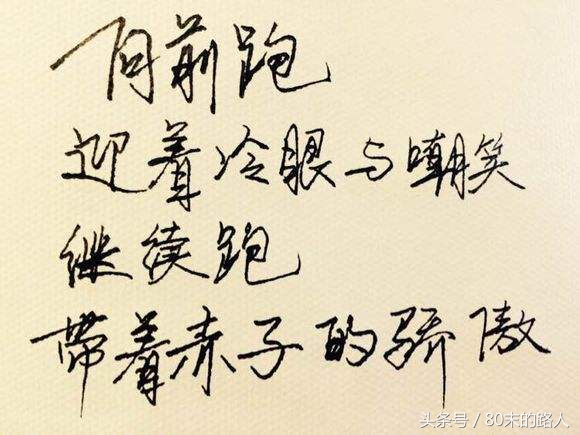 向前跑
迎着冷眼与嘲笑
继续跑
带着赤子的骄傲
头条号 / 80末的路人